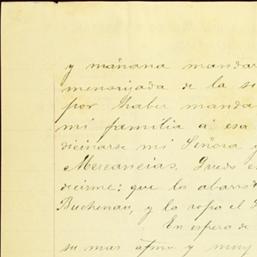 y mañana mandar
mensojada de la se
por haber manda
mi familia á esa
dicinarse mi Señora y
Mercancias. Quedo e
decirme: que los abarro
Buchenau, y la ropa el
En espera de
su mas afmo y muy